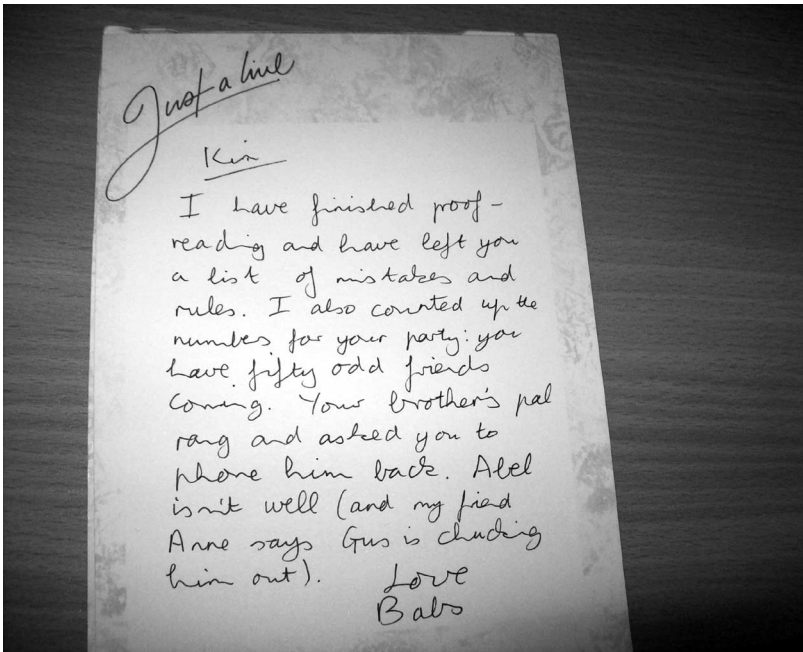 Just a line
Kim
I have finished proof-
reading and have left you
a list of mistakes and
rules. I also counted up the
numbers for your party: you
have fifty odd friends
coming. Your brother's pal
rang and asked you to
phone him back. Abel
isn't well (and my friend
Anne says Gus is chucking
him out).
Love
Babs